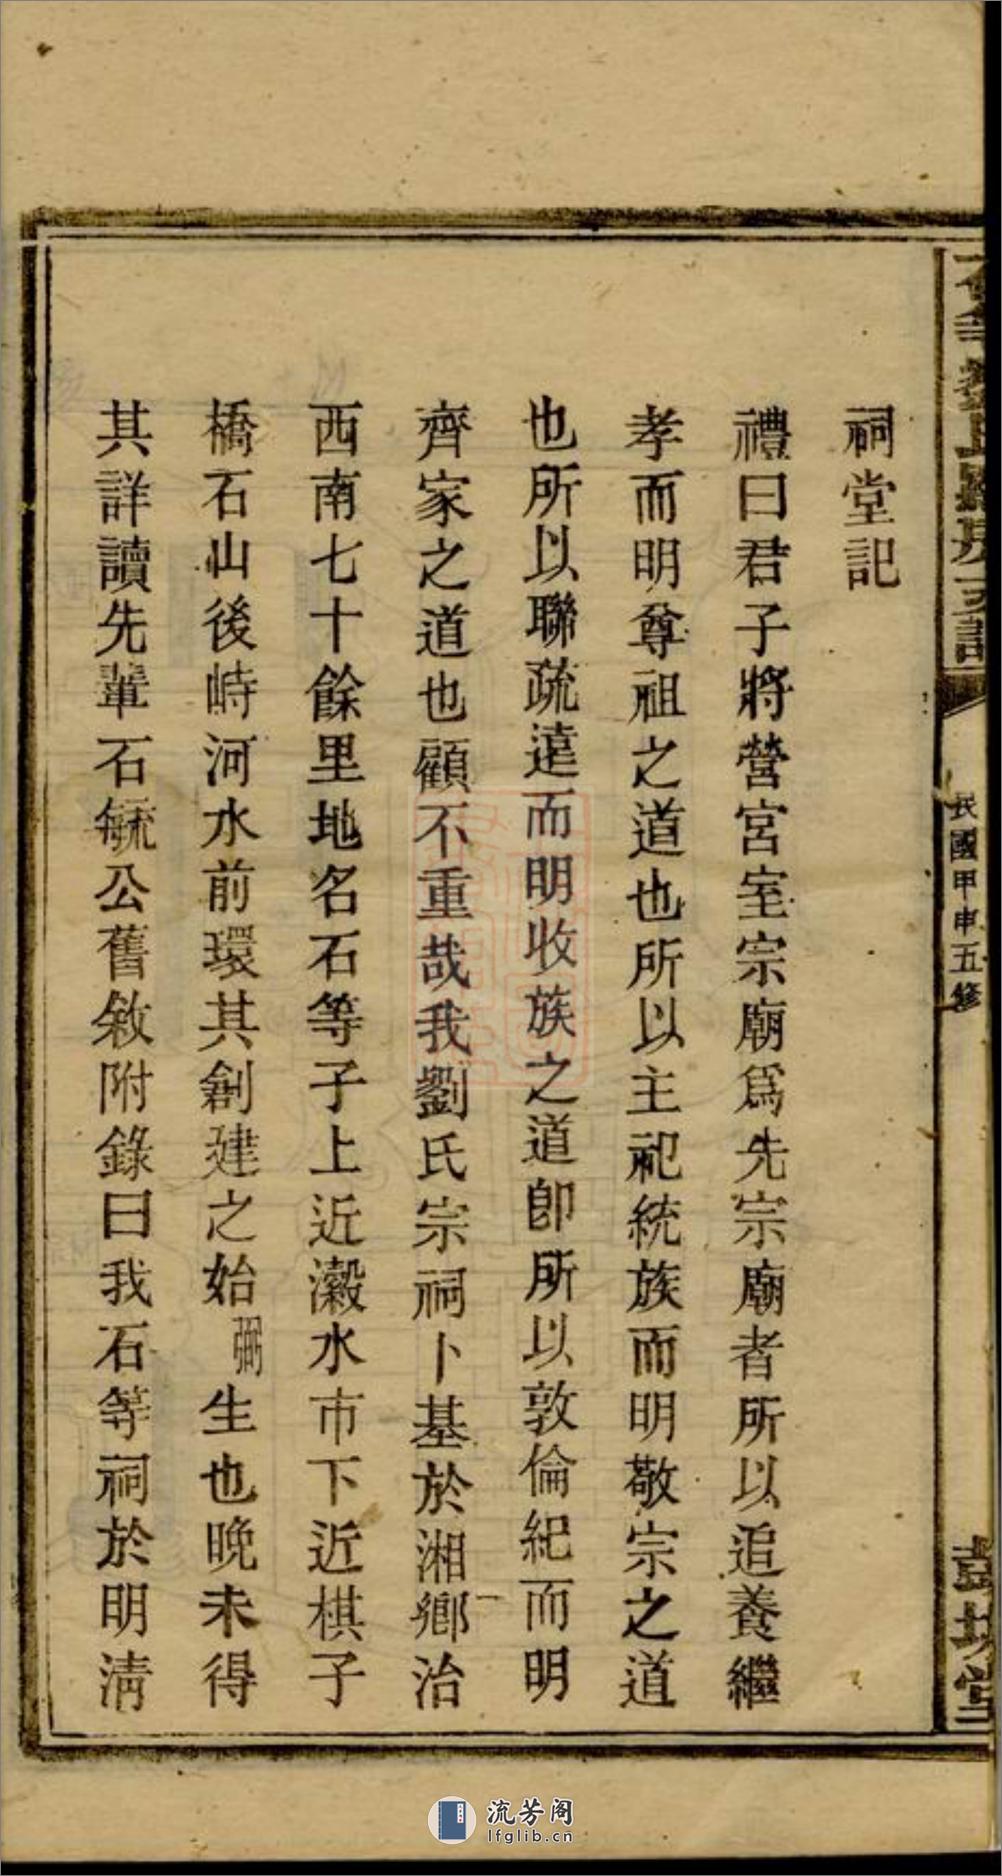 祠堂記
禮曰君子將營宮室宗廟爲先宗廟者所以追養繼
孝而明尊祖之道也所以主祀統族而明敬宗之道
也所以聯疏遠而明收族之道卽所以敦倫紀而明
齊家之道也顧不重哉我劉氏宗祠卜基於湘鄉治
西南七十餘里地名石等子上近瀔水市下近棋子
橋石山後峙河水前環其創建之始弼生也晚未得
其詳讀先輩石毓公舊敘附錄曰我石等祠於明淸
民國甲申五修
彭城堂
流芳阁
lfglib.cn